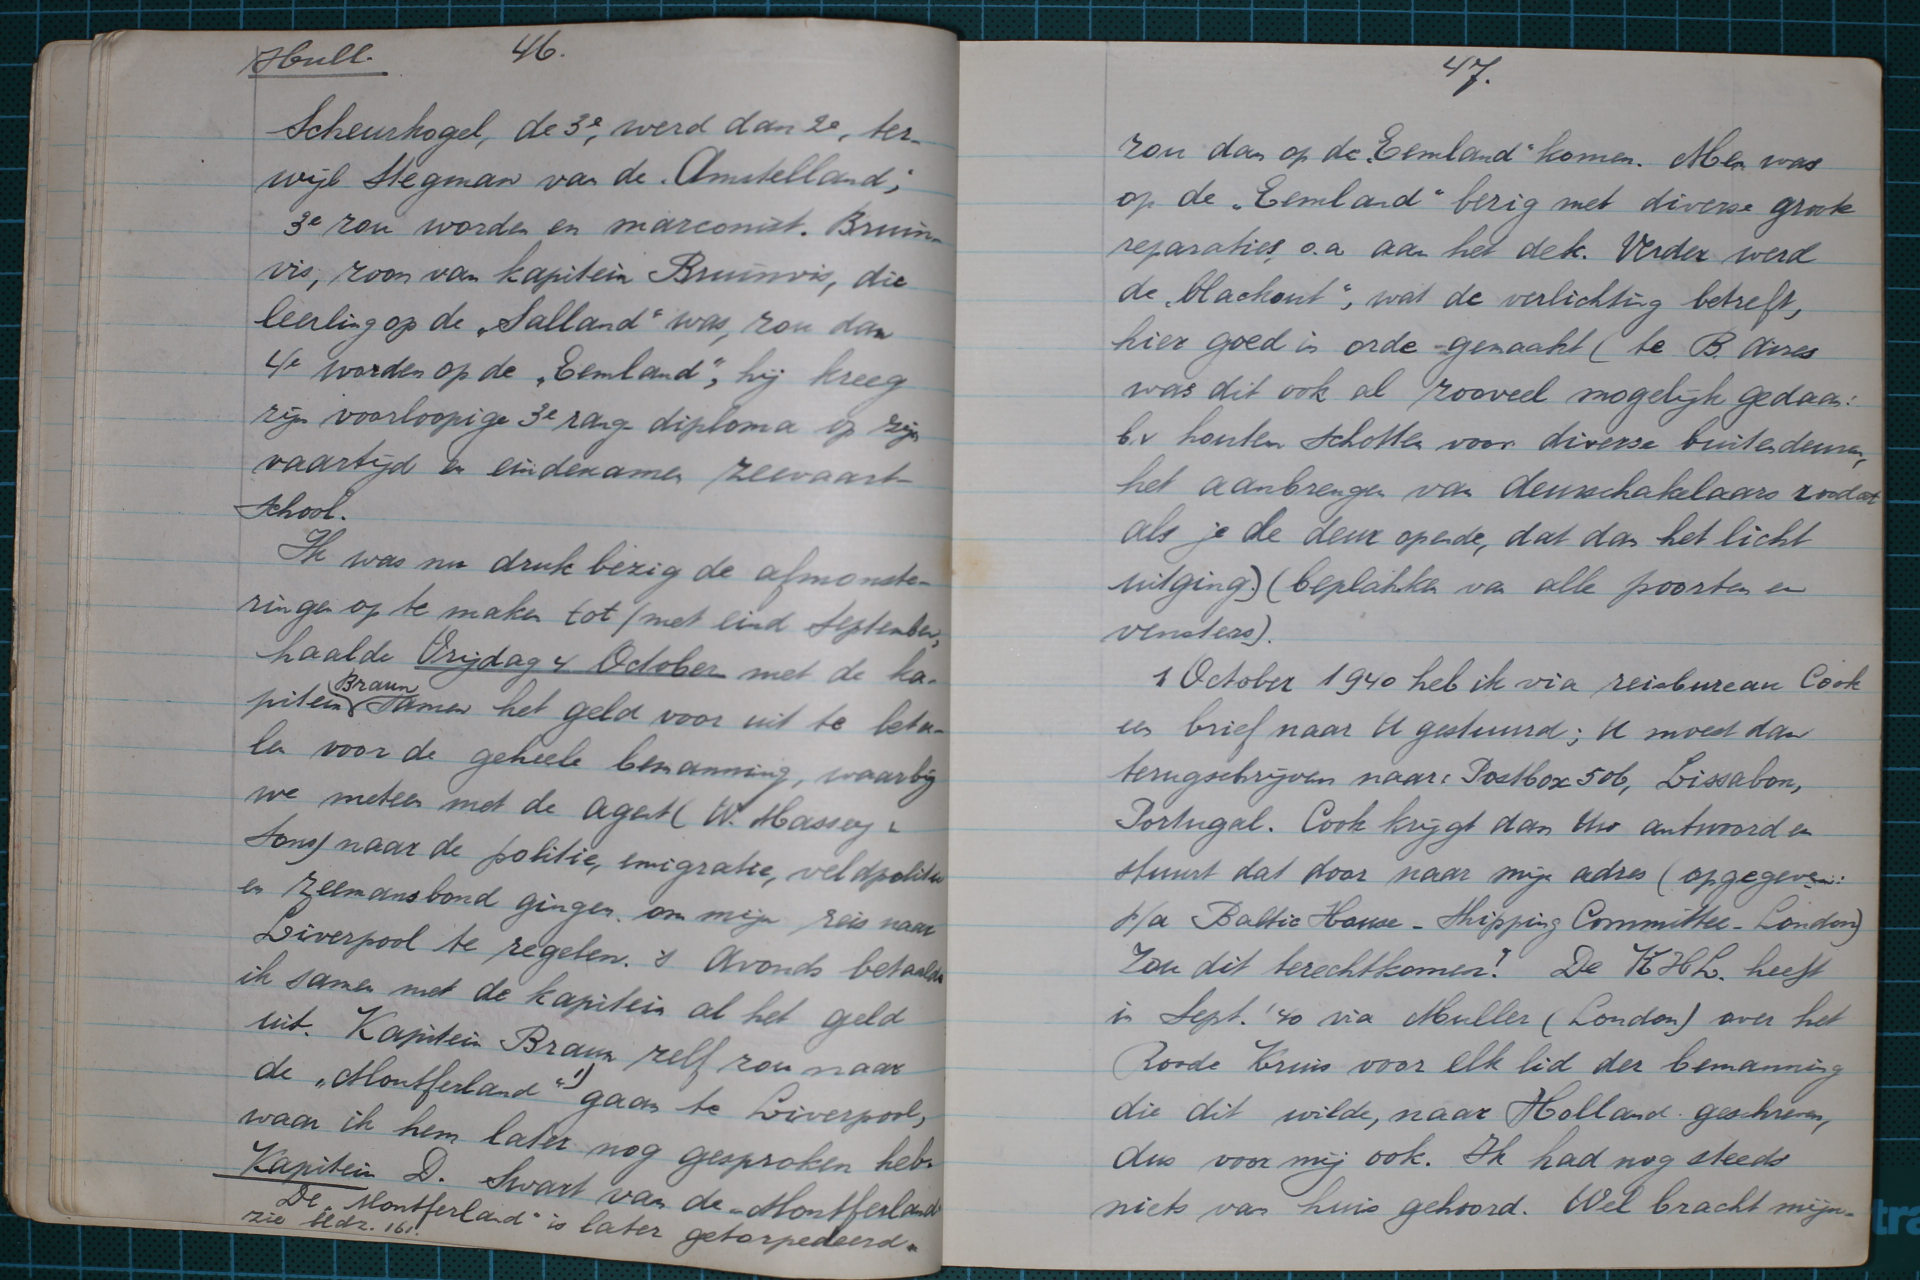 Hull.
46.
Scheurkogel, de 3e, werd dan 2e, ter-
wijl Stegman van de „Amstelland",
3e zou worden en marconist. Bruin-
vis, zoon van kapitein Bruinvis, die
leerling op de „Salland" was, zou dan
4e worden op de „Eemland", hij kreeg
zijn voorloopige 3e rang diploma op zijn
vaartijd en eindexamen zeevaart-
school.
Ik was nu druk bezig de afmonste-
ringen op te maken tot/met eind September,
haalde Vrijdag 4 October met de ka-
pitein Braun samen het geld voor uit te beta-
len voor de geheele bemanning, waarbij
we meteen met de agent (W. Massey &
Sons) naar de politie, emigratie, veldpolitie
en zeemansbond gingen om mijn reis naar
Liverpool te regelen. 's Avonds betaalde
ik samen met de kapitein al het geld
uit. Kapitein Braun zelf zou naar
de „Montferland" 1) gaan te Liverpool,
waar ik hem later nog gesproken heb.
Kapitein D. Swart van de „Montferland"
De „Montferland" is later getorpedeerd.
zie bldz. 161.
47.
zou dan op de „Eemland" komen. Men was
op de „Eemland" bezig met diverse groote
reparaties, o.a. aan het dek. Verder werd
de „blackout", wat de verlichting betreft,
hier goed in orde gemaakt (te B. Aires
was dit ook al zooveel mogelijk gedaan:
b.v houten schotten voor diverse buitendeuren,
het aanbrengen van deurschakelaars zoodat
als je de deur opende, dat dan het licht
uitging.) (beplakken van alle poorten en
vensters).
1 October 1940 heb ik via reisbureau Cook
een brief naar U gestuurd; U moest dan
terugschrijven naar: Postbox 506, Lissabon,
Portugal. Cook krijgt dan Uw antwoord en
stuurt dat door naar mijn adres (opgegeven:
p/a Baltic House - Shipping Committee - London)
Zou dit terechtkomen? De K.H.L. heeft
in Sept. '40 via Muller (London) over het
Roode Kruis voor elk lid der bemanning
die dit wilde, naar Holland geschreven,
dus voor mij ook. Ik had nog steeds
niets van huis gehoord. Wel bracht mijn-
tra